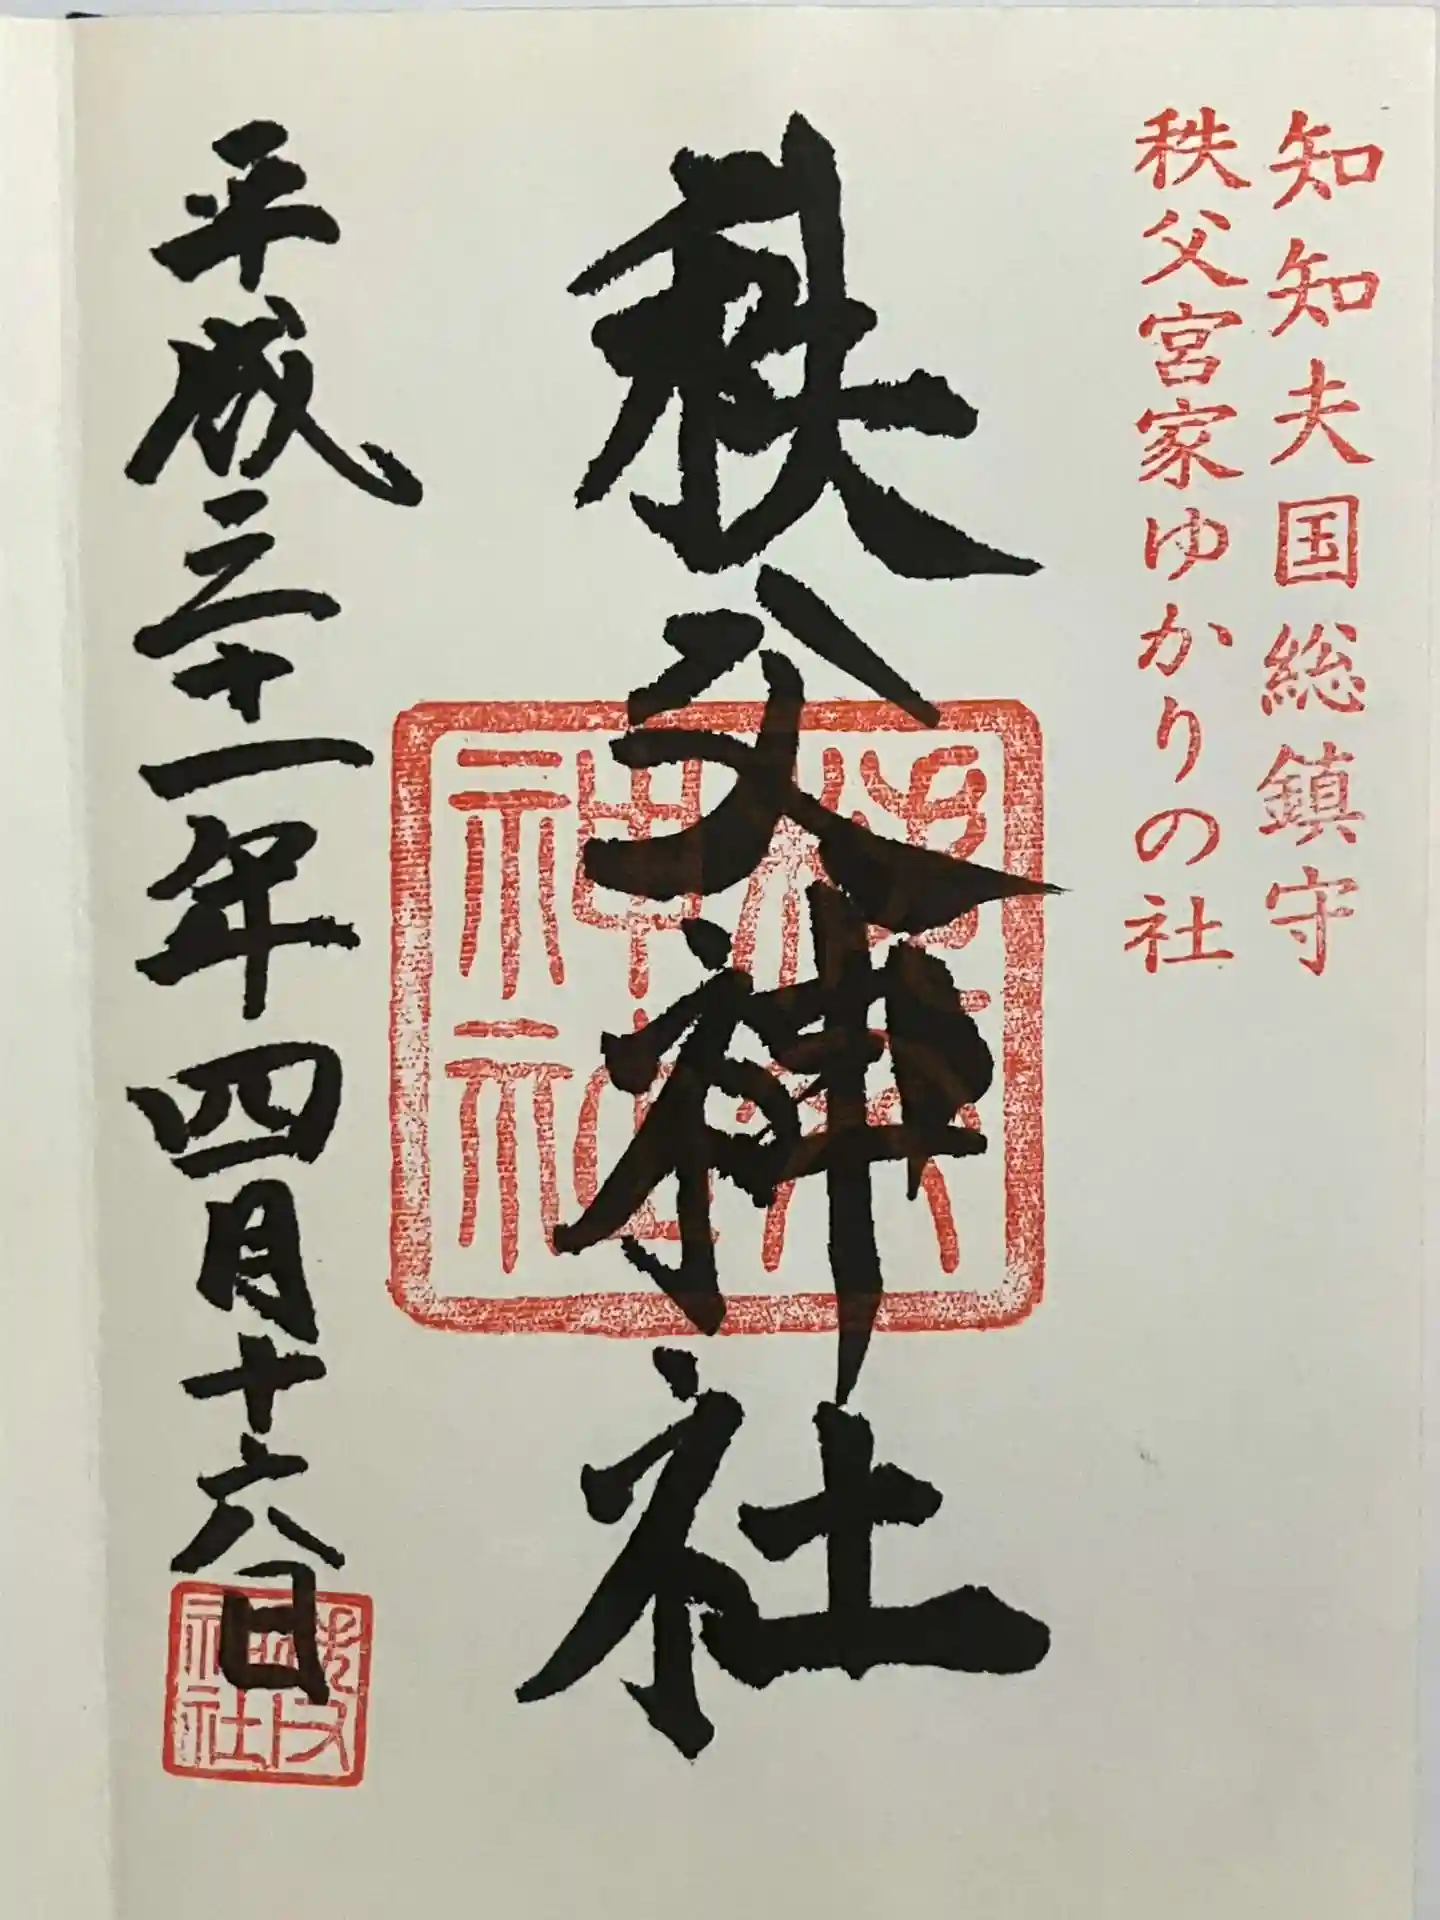 知知夫国総鎮守
秩父宮家ゆかりの社
秩父神社
秩父神社
平成三十一年四月十六日
秩父神社